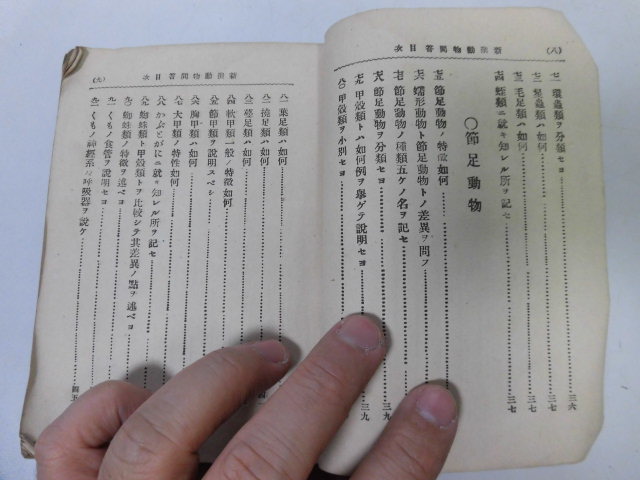 新撰動物問答目次
(八)
七一 環蟲類ヲ分類セヨ 三六
七二 星蟲類ハ如何 三七
七三 毛足類ハ如何 三七
七四 蛭類ニ就キ知レル所ヲ記セ 三七
〇節足動物
七五 節足動物ノ特徴如何
七六 蠕形動物ト節足動物トノ差異ヲ問フ
七七 節足動物ノ種類五ケノ名ヲ記セ
七八 節足動物ヲ分類セヨ 三九
七九 甲殻類トハ如何例ヲ擧ゲテ說明セヨ 三九
八〇 甲殻類ヲ小別セヨ
新撰動物問答目次
(九)
八一 葉足類ハ如何
八二 橈足類ハ如何
八三 蔓足類ハ如何
八四 軟甲類一般ノ特徴如何
八五 節甲類ヲ說明スベシ
八六 胸甲類ハ如何
八七 大甲類ノ特性如何
八八 かぶとがにニ就キ知レル所ヲ記セ
八九 蜘蛛類ト甲殻類トヲ比較シテ其差異ノ點ヲ述ベヨ
九〇 蜘蛛類ノ特徴ヲ述ベヨ
九一 くもノ食管ヲ說明セヨ
九二 くもノ神經系及呼吸器ヲ說ケ 四五